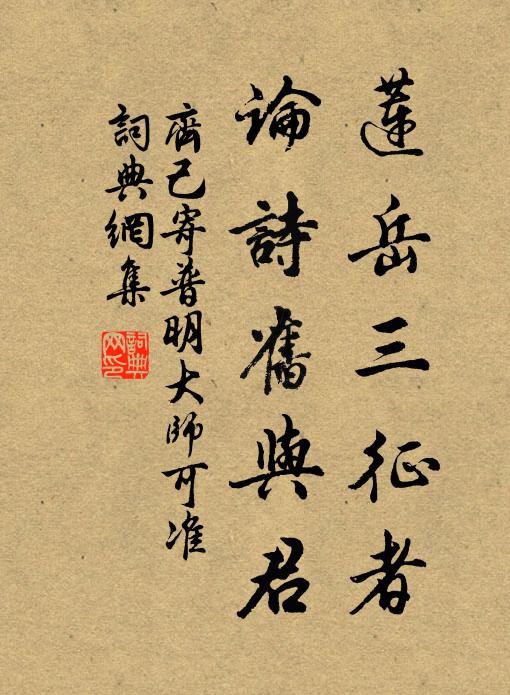 蓮岳三征者
論詩舊與君
齊己寄普明大師可准
詞典網集
詞典网印